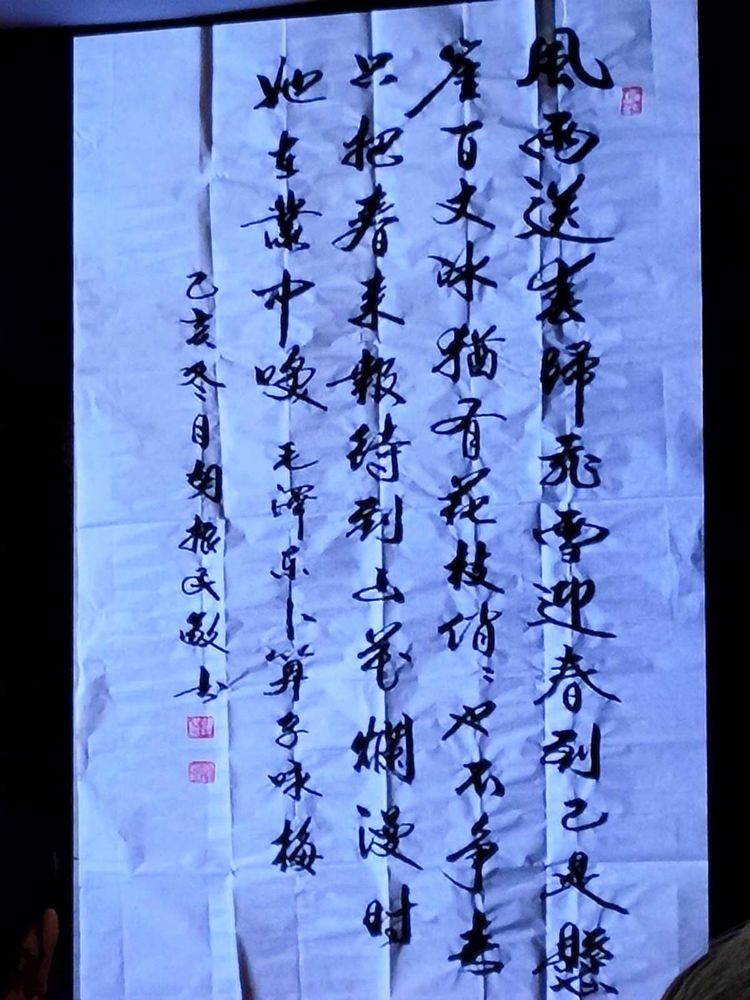 風雨送春歸飛雪迎春到已是懸
崖百丈冰猶有花枝俏〻也不争春
只把春来報待到山花爛漫时
她在叢中咲 毛澤东卜算子咏梅
己亥冬月胡振民敬书